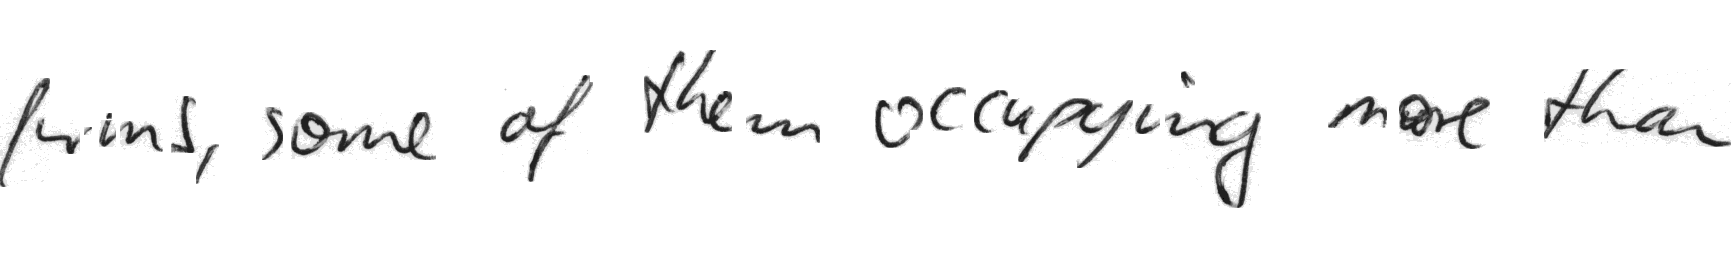 firms, some of them occupying more than